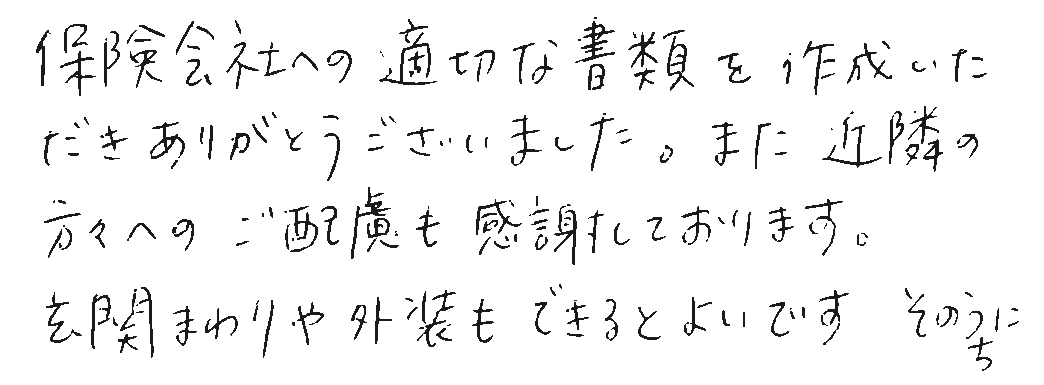 保険会社への適切な書類を作成いた
だきありがとうございました。また近隣の
方々へのご配慮も感謝しております。
玄関まわりや外装もできるとよいです そのうちに